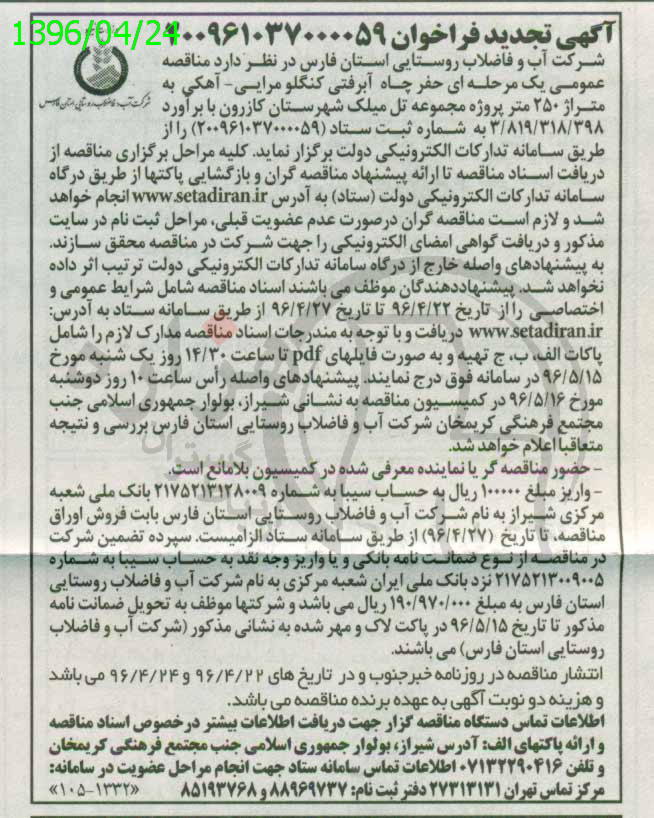 1396/04/24
آگهی تجدید فراخوان ۲۰۰۹۶۱۰۳۷۰۰۰۰۵۹
شرکت آب و فاضلاب روستایی استان فارس
شرکت آب و فاضلاب روستایی استان فارس در نظر دارد مناقصه
عمومی یک مرحله ای حفر چاه آبرفتی کنگلومرایی- آهکی به
متراژ ۲۵۰ متر پروژه مجموعه تل میلک شهرستان کازرون با برآورد
۳/۸۱۹/۳۱۸/۳۹۸ به شماره ثبت ستاد (۲۰۰۹۶۱۰۳۷۰۰۰۰۵۹) را از
طریق سامانه تدارکات الکترونیکی دولت برگزار نماید. کلیه مراحل برگزاری مناقصه از
دریافت اسناد مناقصه تا ارائه پیشنهاد مناقصه گران و بازگشایی پاکتها از طریق درگاه
سامانه تدارکات الکترونیکی دولت (ستاد) به آدرس www.setadiran.ir انجام خواهد
شد و لازم است مناقصه گران درصورت عدم عضویت قبلی، مراحل ثبت نام در سایت
مذکور و دریافت گواهی امضای الکترونیکی را جهت شرکت در مناقصه محقق سازند.
به پیشنهادهای واصله خارج از درگاه سامانه تدارکات الکترونیکی دولت ترتیب اثر داده
نخواهد شد. پیشنهاددهندگان موظف می باشند اسناد مناقصه شامل شرایط عمومی و
اختصاصی را از تاریخ ۹۶/۴/۲۲ تا تاریخ ۹۶/۴/۲۷ از طریق سامانه ستاد به آدرس:
www.setadiran.ir دریافت و با توجه به مندرجات اسناد مناقصه مدارک لازم را شامل
پاکات الف، ب، ج تهیه و به صورت فایلهای pdf تا ساعت ۱۴/۳۰ روز یک شنبه مورخ
۹۶/۵/۱۵ در سامانه فوق درج نمایند. پیشنهادهای واصله رأس ساعت ۱۰ روز دوشنبه
مورخ ۹۶/۵/۱۶ در کمیسیون مناقصه به نشانی شیراز، بولوار جمهوری اسلامی جنب
مجتمع فرهنگی کریمخان شرکت آب و فاضلاب روستایی استان فارس بررسی و نتیجه
متعاقبا اعلام خواهد شد.
- حضور مناقصه گر یا نماینده معرفی شده در کمیسیون بلامانع است.
- واریز مبلغ ۱۰۰۰۰۰ ریال به حساب سیبا به شماره ۲۱۷۵۲۱۳۱۲۸۰۰۹ بانک ملی شعبه
مرکزی شیراز به نام شرکت آب و فاضلاب روستایی استان فارس بابت فروش اوراق
مناقصه، تا تاریخ (۹۶/۴/۲۷) از طریق سامانه ستاد الزامیست. سپرده تضمین شرکت
در مناقصه از نوع ضمانت نامه بانکی و یا واریز وجه نقد به حساب سیبا به شماره
۲۱۷۵۲۱۳۰۰۹۰۰۵ نزد بانک ملی ایران شعبه مرکزی به نام شرکت آب و فاضلاب روستایی
استان فارس به مبلغ ۱۹۰/۹۷۰/۰۰۰ ریال می باشد و شرکتها موظف به تحویل ضمانت نامه
مذکور تا تاریخ ۹۶/۵/۱۵ در پاکت لاک و مهر شده به نشانی مذکور (شرکت آب و فاضلاب
روستایی استان فارس) می باشند.
انتشار مناقصه در روزنامه خبرجنوب و در تاریخ های ۹۶/۴/۲۲ و ۹۶/۴/۲۴ می باشد
و هزینه دو نوبت آگهی به عهده برنده مناقصه می باشد.
اطلاعات تماس دستگاه مناقصه گزار جهت دریافت اطلاعات بیشتر درخصوص اسناد مناقصه
و ارائه پاکتهای الف: آدرس شیراز، بولوار جمهوری اسلامی جنب مجتمع فرهنگی کریمخان
و تلفن ۰۷۱۳۲۲۹۰۴۱۶ اطلاعات تماس سامانه ستاد جهت انجام مراحل عضویت در سامانه:
مرکز تماس تهران ۲۷۳۱۳۱۳۱ دفتر ثبت نام: ۸۸۹۶۹۷۳۷ و ۸۵۱۹۳۷۶۸ «۱۰۵-۱۳۳۲»